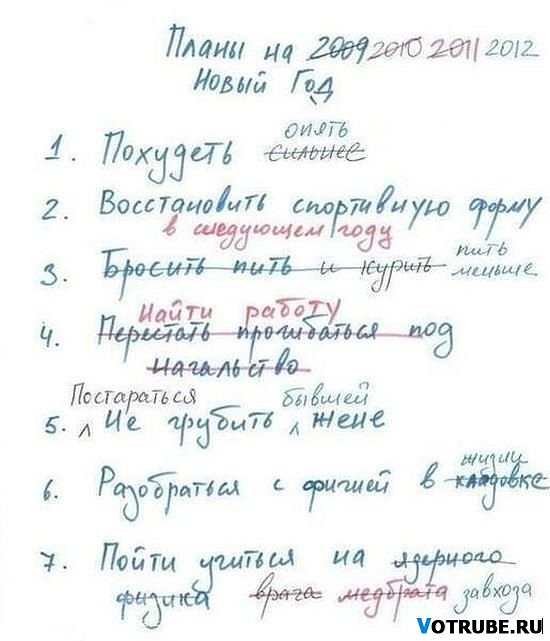 Планы на 2009 2010 2011 2012
Новый Год
опять
1. Похудеть сильнее
2. Восстановить спортивную форму
в следующем году
пить
3. Бросить пить и курить меньше
Найти работу
4. Перестать прогибаться под
начальство
Постараться бывшей
5. Не грубить жене
жизни
6. Разобраться с фигнёй в кладовке
7. Пойти учиться на ядерного
физика врача медбрата завхоза
VOTRUBE.RU